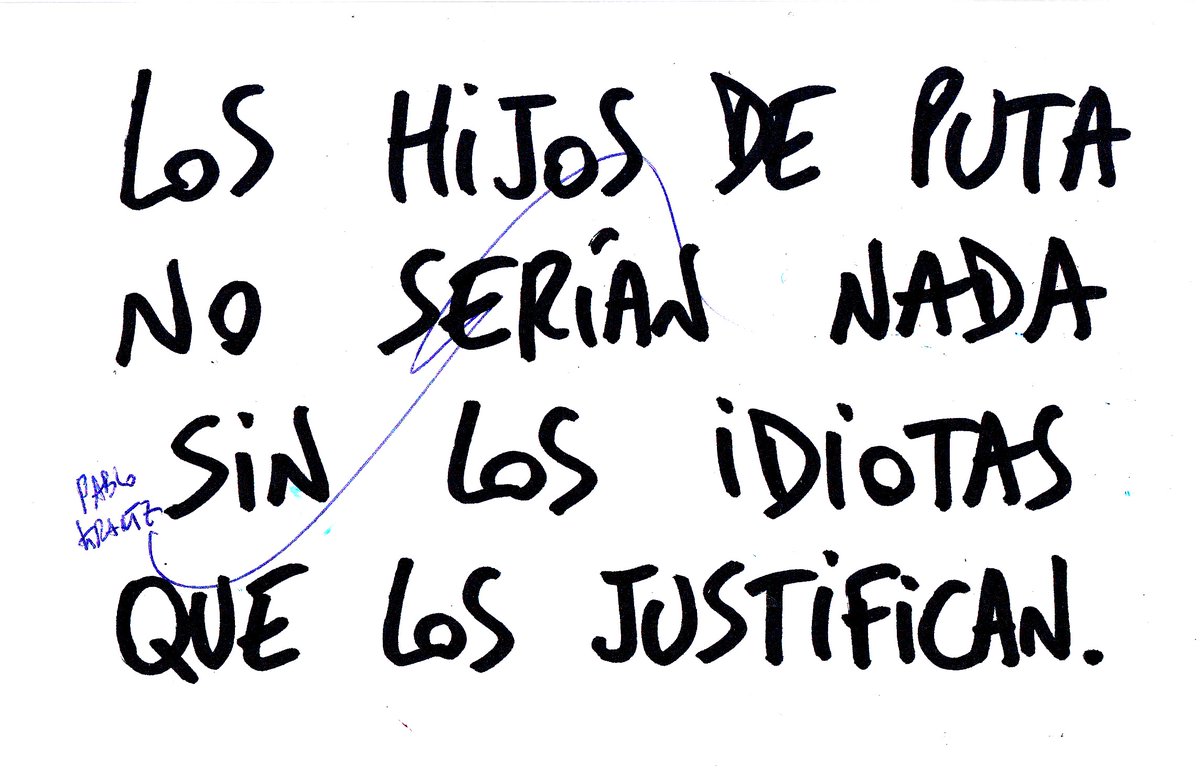 LOS HIJOS DE PUTA
NO SERÍAN NADA
SIN LOS IDIOTAS
QUE LOS JUSTIFICAN.
PABLO
KRANTZ